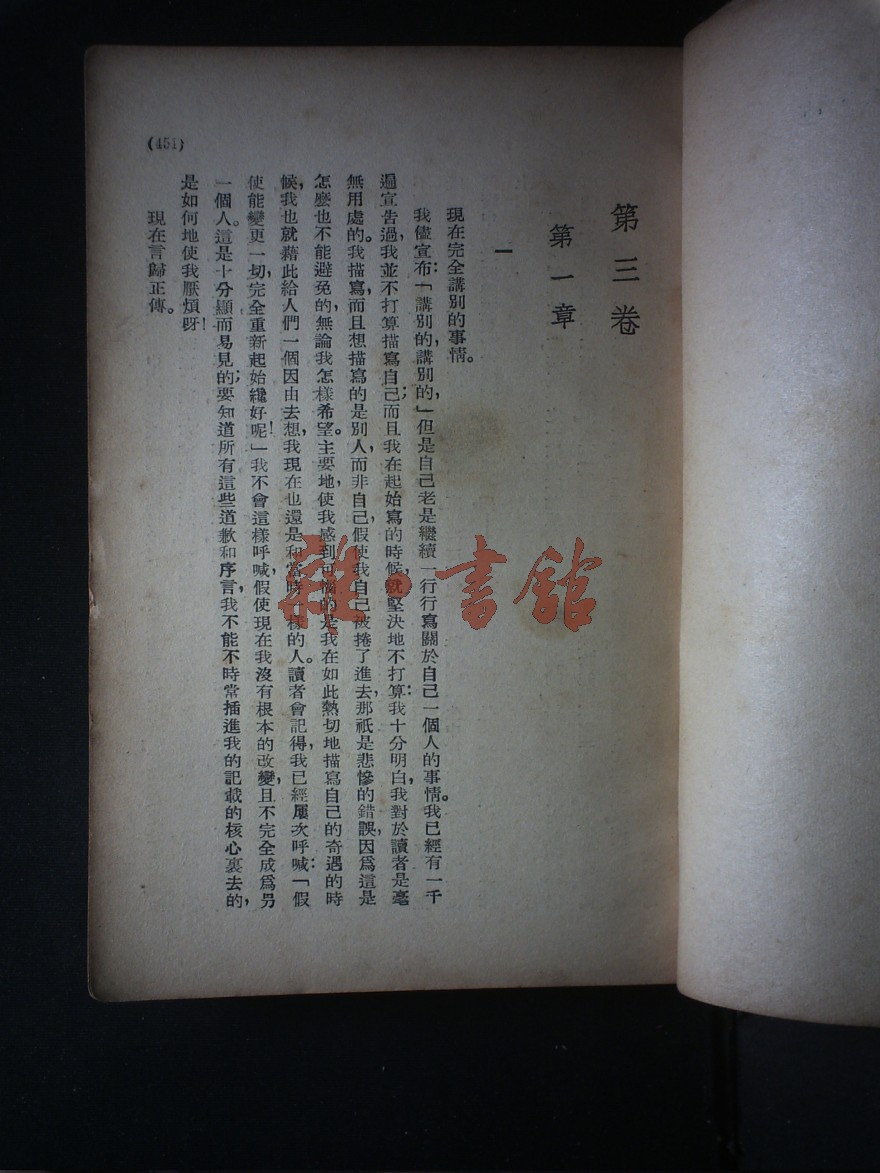 第三卷
第一章
一
現在完全講別的事情。
我儘宣布：「講別的，講別的，」但是自己老是繼續一行行寫關於自己一個人的事情。我已經有一千
遍宣告過，我並不打算描寫自己；而且我在起始寫的時候，就堅決地不打算：我十分明白，我對於讀者是毫
無用處的。我描寫，而且想描寫的是別人，而非自己，假使我自己被捲了進去，那祇是悲慘的錯誤，因爲這是
怎麼也不能避免的，無論我怎樣希望。主要地，使我感到可惱的是我在如此熱切地描寫自己的奇遇的時
候，我也就藉此給人們一個因由去想，我現在也還是和當時一樣的人。讀者會記得，我已經屢次呼喊：「假
使能變更一切，完全重新起始纔好呢！」我不會這樣呼喊，假使現在我沒有根本的改變，且不完全成爲另
一個人。這是十分顯而易見的；要知道所有這些道歉和序言，我不能不時常插進我的記載的核心裏去的，
是如何地使我厭煩呀！
現在言歸正傳。
(451)
雜·書館